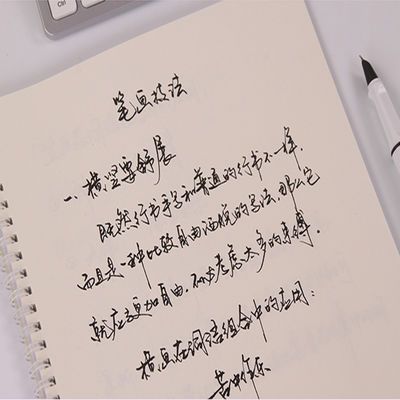 Ctrl
笔画技法
一、横竖要舒展
既然行书手写和普通的行书不一样,
而且是一种比较自由洒脱的写法,那么它
就应该更加自由,不必考虑太多的束缚。
横画在词语组合中的应用:
苦中作乐